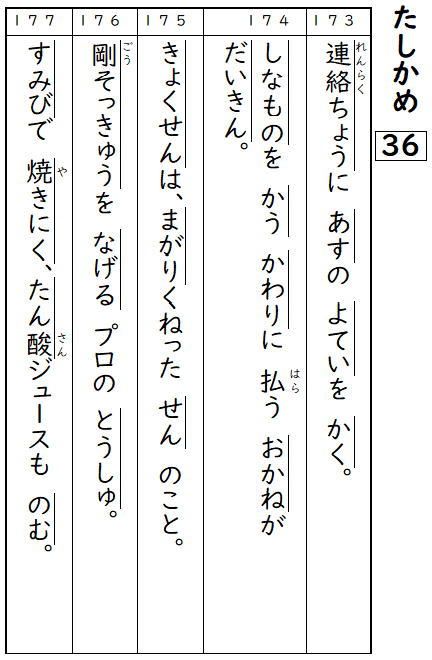 たしかめ 36
173
連絡ちょうに あすの よていを かく。
れんらく
174
しなものを かう かわりに 払う おかねが
はら
だいきん。
175
きょくせんは、まがりくねった せん のこと。
176
剛そっきゅうを なげる プロの とうしゅ。
ごう
177
すみびで 焼きにく、たん酸ジュースも のむ。
や さん